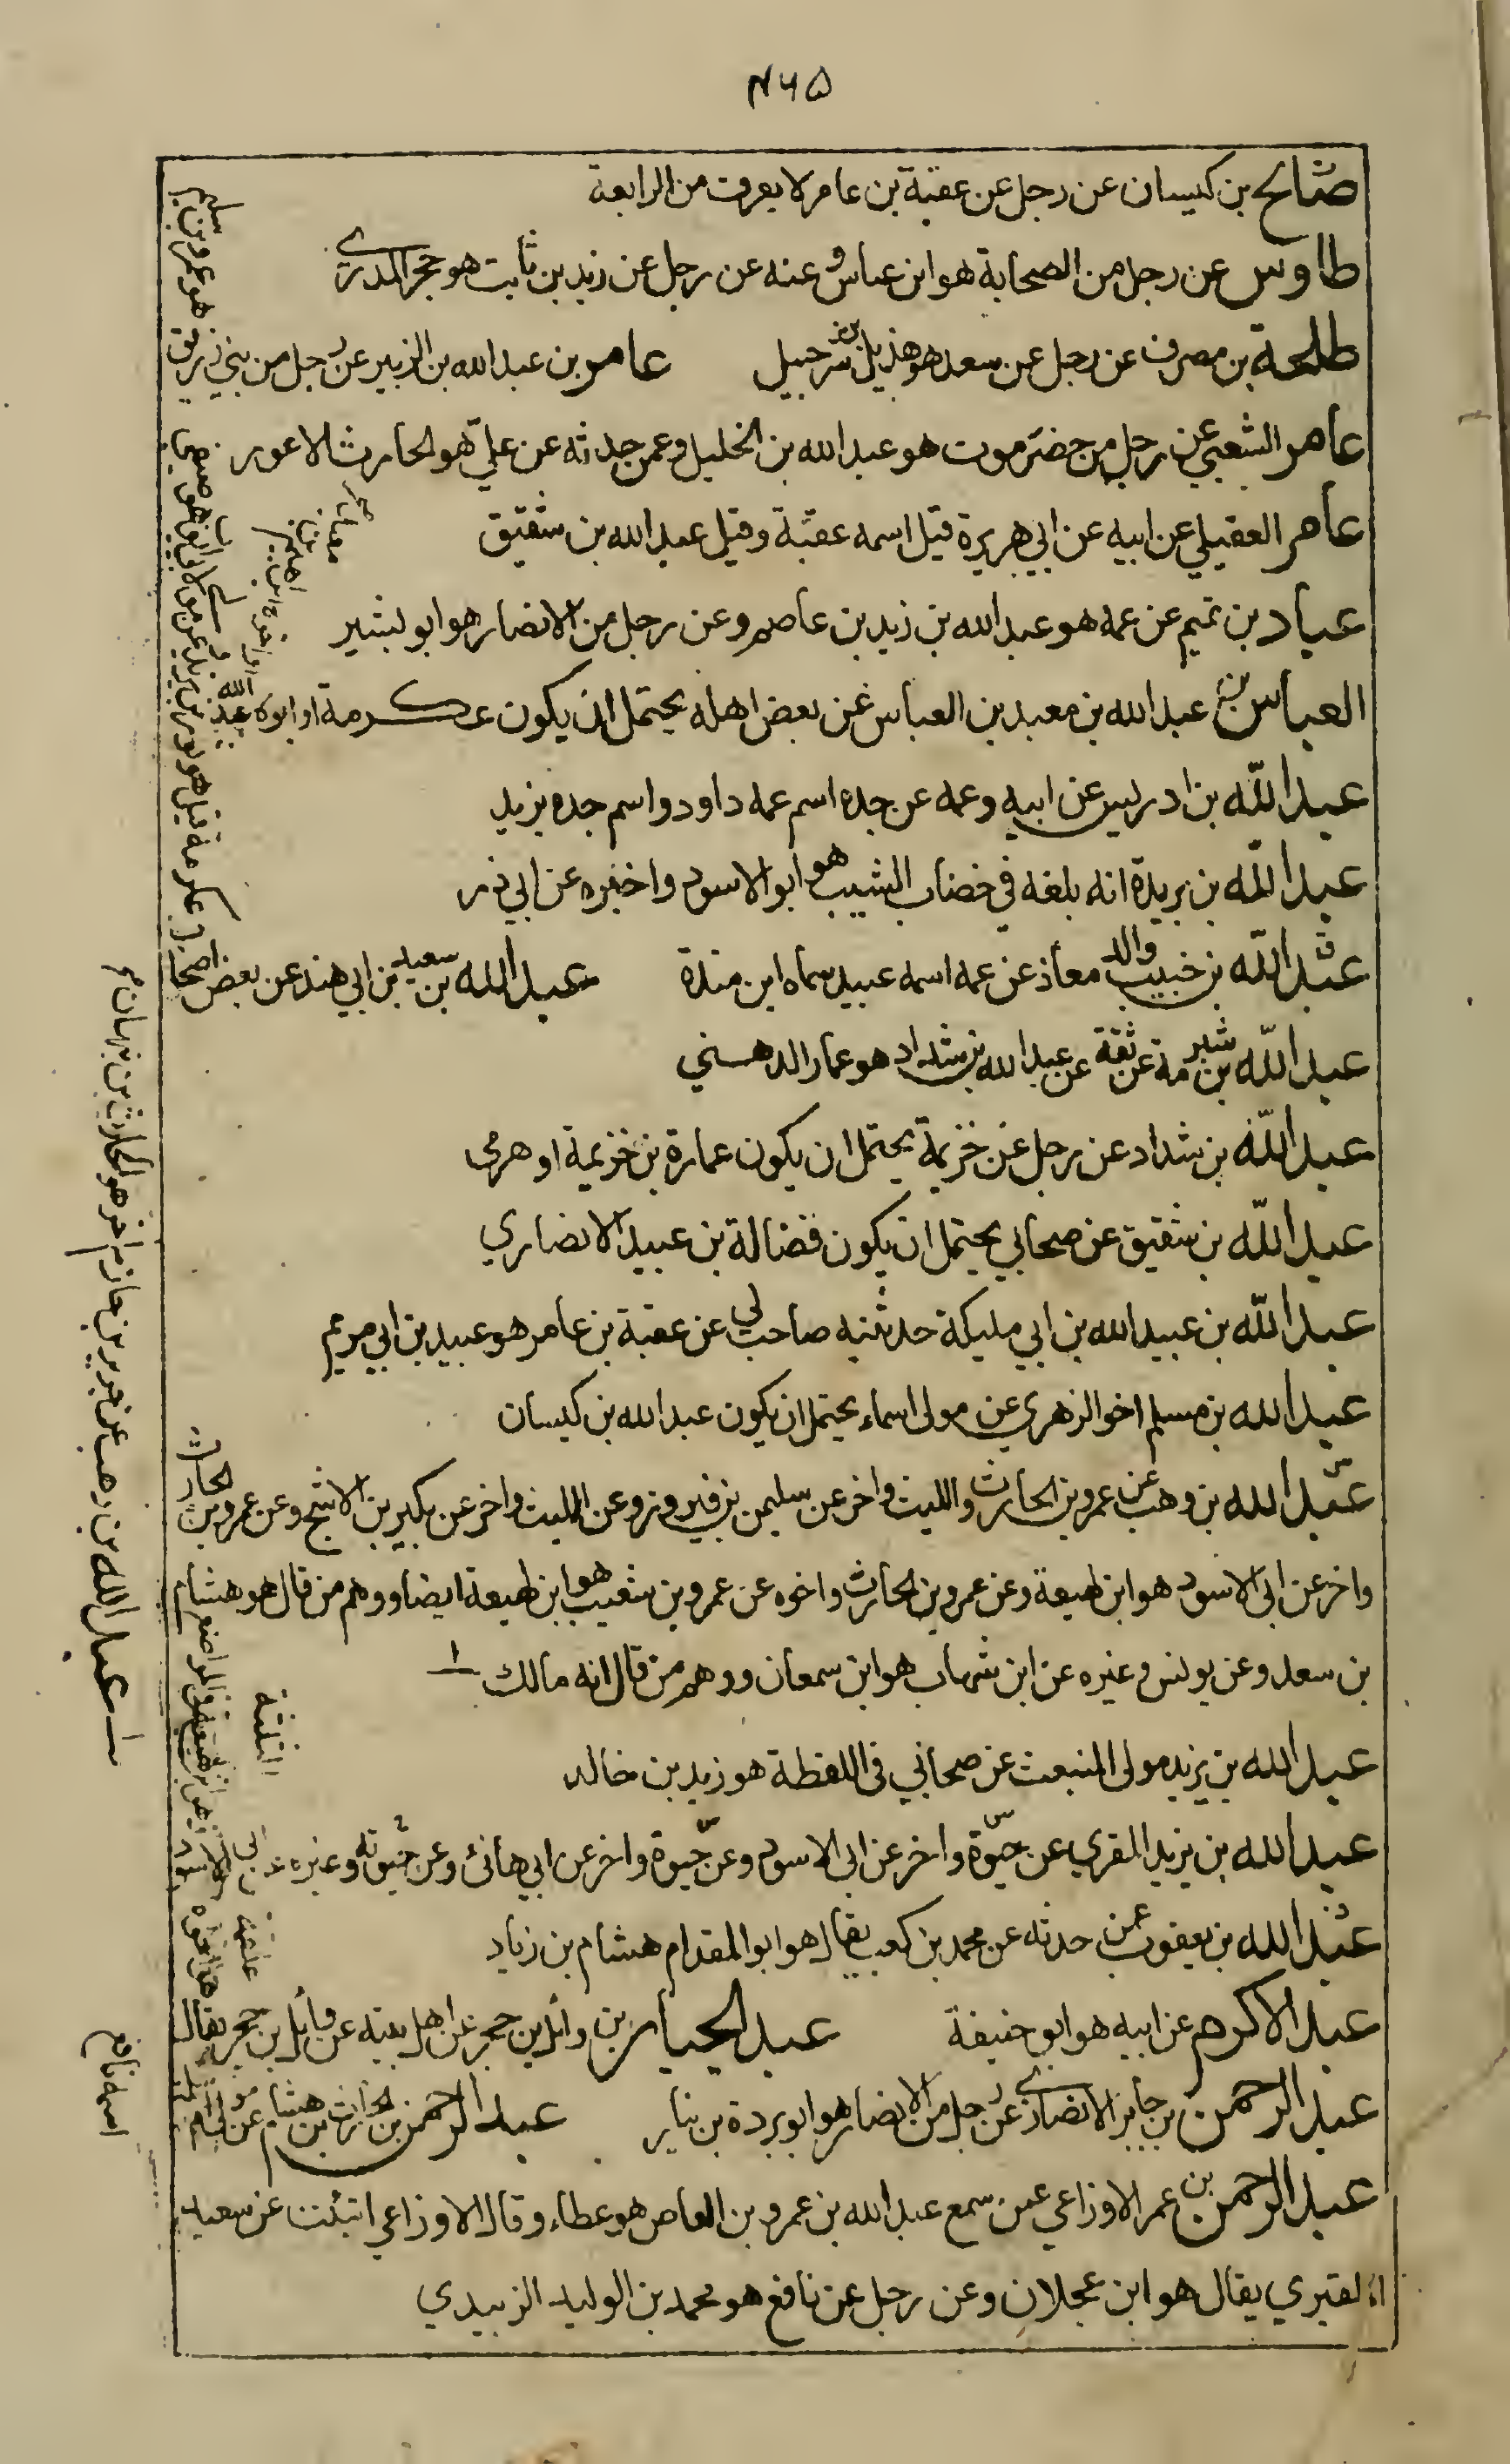 ۴۶۵
صالح بن كيسان عن رجل عن عقبة بن عامر لا يعرف من الرابعة
طاوس عن رجل من الصحابة هو ابن عباس وعنه عن رجل عن زيد بن ثابت هو حجر المدري
طلحة بن مصرف عن رجل عن سعد هو هذيل بن شرحبيل عامر بن عبد الله بن الزبير عن رجل من بني زريق
هو عمرو بن سليم
عامر الشعبي عن رجل من حضرموت هو عبد الله بن الخليل وعمن حدثه عن علي هو الحارث الاعور
عامر العقيلي عن ابيه عن ابي هريرة قيل اسمه عقبة وقيل عبد الله بن شقيق
عباد بن تميم عن عمه هو عبد الله بن زيد بن عاصم وعن رجل من الانصار هو ابو بشير
العباس بن عبد الله بن معبد بن العباس عن بعض اهله يحتمل ان يكون عكرمة او ابوه عبد الله
عبد الله بن ادريس عن ابيه وعمه عن جده اسم عمه داود واسم جده يزيد
عبد الله بن بريدة انه بلغه في خضاب الشيب هو ابو الاسود واخيره عن ابي ذر
عبد الله بن خبيب والد معاذ عن عمه اسمه عبيد سماه ابن مندة عبد الله بن سعيد بن ابي هند عن بعض اصحاب
عكرمة قيل هو ثور بن يزيد
عبد الله بن شبرمة عن ثقة عن عبد الله بن شداد هو عمار الدهني
عبد الله بن شداد عن رجل عن خزيمة يحتمل ان يكون عمارة بن خزيمة او هرمي
عبد الله بن شقيق عن صحابي يحتمل ان يكون فضالة بن عبيد الانصاري
عبد الله بن عبيد الله بن ابي مليكة حدثنيه صاحب لي عن عقبة بن عامر هو عبيد بن ابي مريم
عبد الله بن مسلم اخو الزهري عن مولى اسماء يحتمل ان يكون عبد الله بن كيسان
عبد الله بن وهب عن جرير بن حازم واخر هو الحارث بن نبهان
عبد الله بن وهب عن عمرو بن الحارث والليث واخر عن سليمن بن فيروز وعن الليث واخر عن بكير بن الاشج وعن عمرو بن الحارث
واخر عن ابي الاسود هو ابن لهيعة وعن عمرو بن الحارث واخوه عن عمرو بن شعيب هو ابن لهيعة ايضا ووهم من قال هو هشام
بن سعد وعن يونس وغيره عن ابن شهاب هو ابن سمعان ووهم من قال انه مالك
عبد الله بن يزيد مولى المنبعث عن صحابي في اللقطة هو زيد بن خالد
عبد الله بن يزيد المقري عن حيوة واخر عن ابي الاسود وعن حيوة واخر عن ابي هانئ وعن حيوة وغيره عن ابي
عبد الله بن يعقوب عمن حدثه عن محمد بن كعب يقال هو ابو المقدام هشام بن زياد
عبد الاكرم عن ابيه هو ابو حنيفة عبد الجبار بن وائل بن حجر عن اهل بيته عن وائل بن حجر يقال
هو اخوه علقمة
عبد الرحمن بن جابر الانصاري عن رجل من الانصار هو ابو بردة بن نيار عبد الرحمن بن الحارث بن هشام عن مولى ام سلمة
اسمه نافع
عبد الرحمن بن عمر الاوزاعي عمن سمع عبد الله بن عمرو بن العاص هو عطاء وقال الاوزاعي انبئت عن سعيد
المقبري يقال هو ابن عجلان وعن رجل عن نافع هو محمد بن الوليد الزبيدي